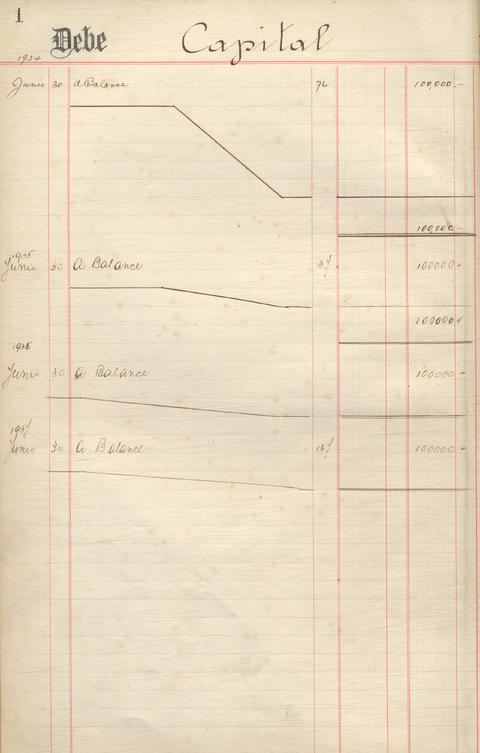 1
Debe Capital
1934
Junio 30 a Balance 76 100,000.-
100,000.-
1935
Junio 30 A Balance 100000-
100000-
1936
Junio 30 a Balance 100000-
1937
Junio 30 a Balance 100000-